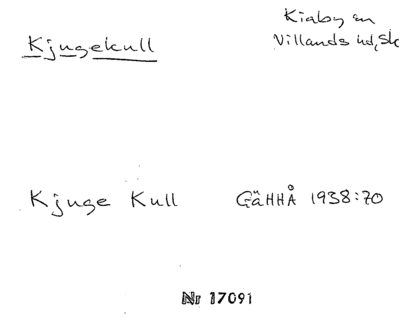 Kiaby sn
Villands hd, Sk
Kjugekull
Kjuge Kull GäHHÅ 1938:70
Nr 17091